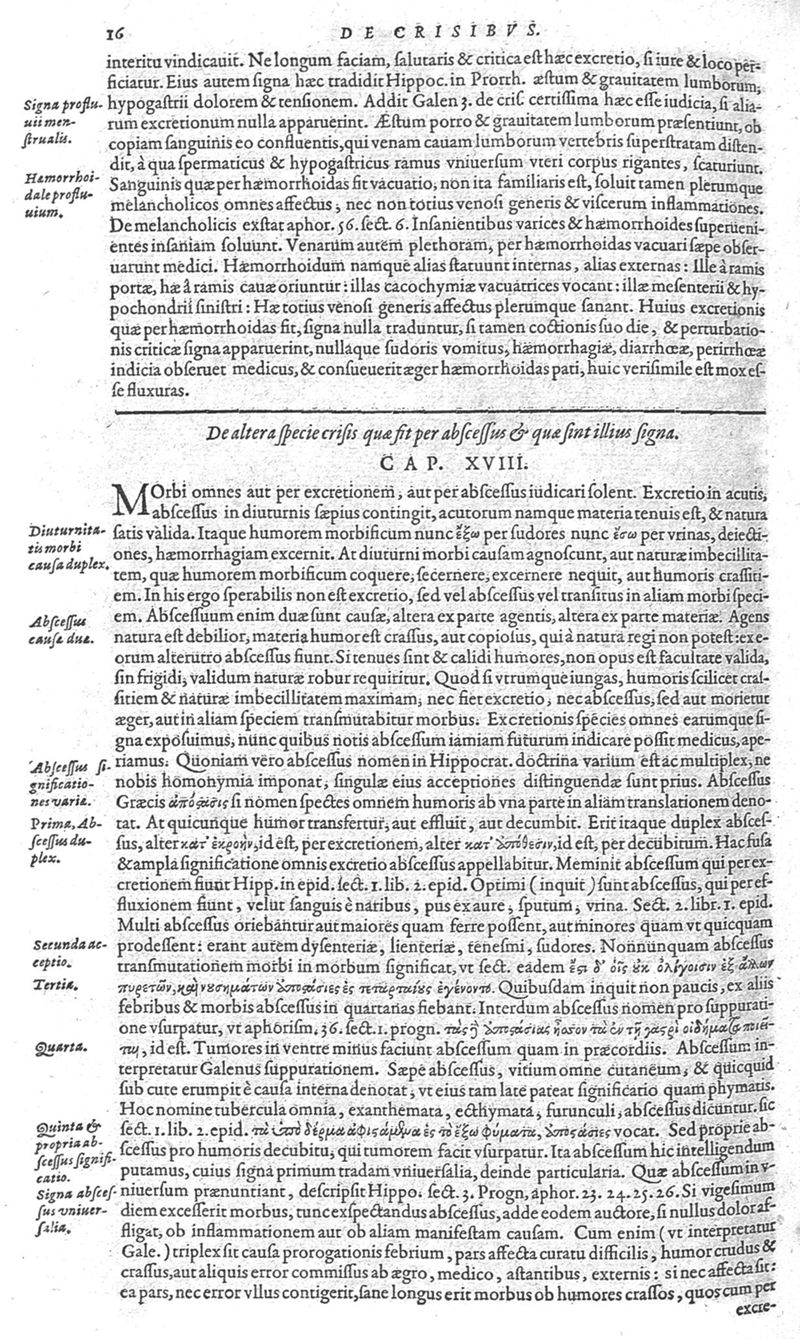 16
DE CRISIBVS.
interitu vindicauit. Ne longum faciam, salutaris & critica est hæc excretio, si iure & loco per-
ficiatur. Eius autem signa hæc tradidit Hippoc. in Prorrh. æstum & grauitatem lumborum,
Signa proflu-
uii men-
strualis.
hypogastrii dolorem & tensionem. Addit Galen 3. de cris. certissima hæc esse iudicia, si alia-
rum excretionum nulla apparuerint. Æstum porro & grauitatem lumborum præsentiunt, ob
copiam sanguinis eo confluentis, qui venam cauam lumborum vertebris superstratam disten-
dit, à qua spermaticus & hypogastricus ramus vniuersum vteri corpus rigantes, scaturiunt.
Hæmorrhoi-
dale proflu-
uium.
Sanguinis quæ per hæmorrhoidas fit vacuatio, non ita familiaris est, soluit tamen plerumque
melancholicos omnes affectus, nec non totius venosi generis & viscerum inflammationes.
De melancholicis exstat aphor. 56. sect. 6. Insanientibus varices & hæmorrhoides superueni-
entes insaniam soluunt. Venarum autem plethoram, per hæmorrhoidas vacuari sæpe obser-
uarunt medici. Hæmorrhoidum namque alias statuunt internas, alias externas: Ille à ramis
portæ, hæ à ramis cauæ oriuntur: illas cacochymiæ vacuatrices vocant: illæ mesenterii & hy-
pochondrii sinistri: Hæ totius venosi generis affectus plerumque sanant. Huius excretionis
quæ per hæmorrhoidas fit, signa nulla traduntur, si tamen coctionis suo die, & perturbatio-
nis criticæ signa apparuerint, nullaque sudoris vomitus, hæmorrhagiæ, diarrhœæ, perirrhœæ
indicia obseruet medicus, & consueuerit æger hæmorrhoidas pati, huic verisimile est mox es-
se fluxuras.
De altera specie crisis quæ fit per abscessus & quæ sint illius signa.
CAP. XVIII.
MOrbi omnes aut per excretionem, aut per abscessus iudicari solent. Excretio in acutis,
abscessus in diuturnis sæpius contingit, acutorum namque materia tenuis est, & natura
Diuturnita-
tis morbi
causa duplex.
satis valida. Itaque humorem morbificum nunc ἔξω per sudores nunc ἔσω per vrinas, deiecti-
ones, hæmorrhagiam excernit. At diuturni morbi causam agnoscunt, aut naturæ imbecillita-
tem, quæ humorem morbificum coquere, secernere, excernere nequit, aut humoris crassiti-
em. In his ergo sperabilis non est excretio, sed vel abscessus vel transitus in aliam morbi speci-
Abscessus
causæ duæ.
em. Abscessuum enim duæ sunt causæ, altera ex parte agentis, altera ex parte materiæ. Agens
natura est debilior, materia humor est crassus, aut copiosus, qui à natura regi non potest: ex e-
orum alterutro abscessus fiunt. Si tenues sint & calidi humores, non opus est facultate valida,
sin frigidi, validum naturæ robur requiritur. Quod si vtrumque iungas, humoris scilicet cras-
sitiem & naturæ imbecillitatem maximam, nec fiet excretio, nec abscessus, sed aut morietur
æger, aut in aliam speciem transmutabitur morbus. Excretionis species omnes earumque si-
gna exposuimus, nunc quibus notis abscessum iamiam futurum indicare possit medicus, ape-
Abscessus si-
gnificatio-
nes variæ.
riamus. Quoniam vero abscessus nomen in Hippocrat. doctrina varium est ac multiplex, ne
nobis homonymia imponat, singulæ eius acceptiones distinguendæ sunt prius. Abscessus
Græcis ἀπόστασις si nomen spectes omnem humoris ab vna parte in aliam translationem deno-
Prima, Ab-
scessus du-
plex.
tat. At quicunque humor transfertur, aut effluit, aut decumbit. Erit itaque duplex absces-
sus, alter κατ' ἐκροὴν, id est, per excretionem, alter κατ' ἀπόθεσιν, id est, per decubitum. Hac fusa
& ampla significatione omnis excretio abscessus appellabitur. Meminit abscessum qui per ex-
cretionem fiunt Hipp. in epid. sect. 1. lib. 2. epid. Optimi (inquit) sunt abscessus, qui per ef-
fluxionem fiunt, velut sanguis è naribus, pus ex aure, sputum, vrina. Sect. 2. libr. 1. epid.
Multi abscessus oriebantur aut maiores quam ferre possent, aut minores quam vt quicquam
Secunda ac-
ceptio.
prodessent: erant autem dysenteriæ, lienteriæ, tenesmi, sudores. Nonnunquam abscessus
transmutationem morbi in morbum significat, vt sect. eadem ἔστι δ' οἷς οὐκ ὀλίγοισιν ἐξ ἄλλων
Tertia.
πυρετῶν, καὶ νουσημάτων ἀποστάσιες ἐς τεταρταίους ἐγένοντο. Quibusdam inquit non paucis, ex aliis
febribus & morbis abscessus in quartanas fiebant. Interdum abscessus nomen pro suppurati-
one vsurpatur, vt aphorism. 36. sect. 1. progn. τὰς δὲ ἀποστασίας ἧσσον τὰ ἐν τῇ γαστρὶ οἰδήματα ποιέε-
Quarta.
ται, id est. Tumores in ventre minus faciunt abscessum quam in præcordiis. Abscessum in-
terpretatur Galenus suppurationem. Sæpe abscessus, vitium omne cutaneum, & quicquid
sub cute erumpit è causa interna denotat, vt eius tam late pateat significatio quam phymatis.
Hoc nomine tubercula omnia, exanthemata, ecthymata, furunculi, abscessus dicuntur. sic
Quinta &
propria ab-
scessus signifi-
catio.
sect. 1. lib. 2. epid. τὰ ὑπὸ δέρμα ἀφιστάμενα ἐς τὸ ἔξω φύματα, ἀποστάσιες vocat. Sed proprie ab-
scessus pro humoris decubitu, qui tumorem facit vsurpatur. Ita abscessum hic intelligendum
putamus, cuius signa primum tradam vniuersalia, deinde particularia. Quæ abscessum in v-
Signa absces-
sus vniuer-
salia.
niuersum prænuntiant, descripsit Hippo. sect. 3. Progn, aphor. 23. 24. 25. 26. Si vigesimum
diem excesserit morbus, tunc exspectandus abscessus, adde eodem auctore, si nullus dolor af-
fligat, ob inflammationem aut ob aliam manifestam causam. Cum enim (vt interpretatur
Gale.) triplex sit causa prorogationis febrium, pars affecta curatu difficilis, humor crudus &
crassus, aut aliquis error commissus ab ægro, medico, astantibus, externis: si nec affecta sit:
ea pars, nec error vllus contigerit, sane longus erit morbus ob humores crassos, quos cum per
excre-